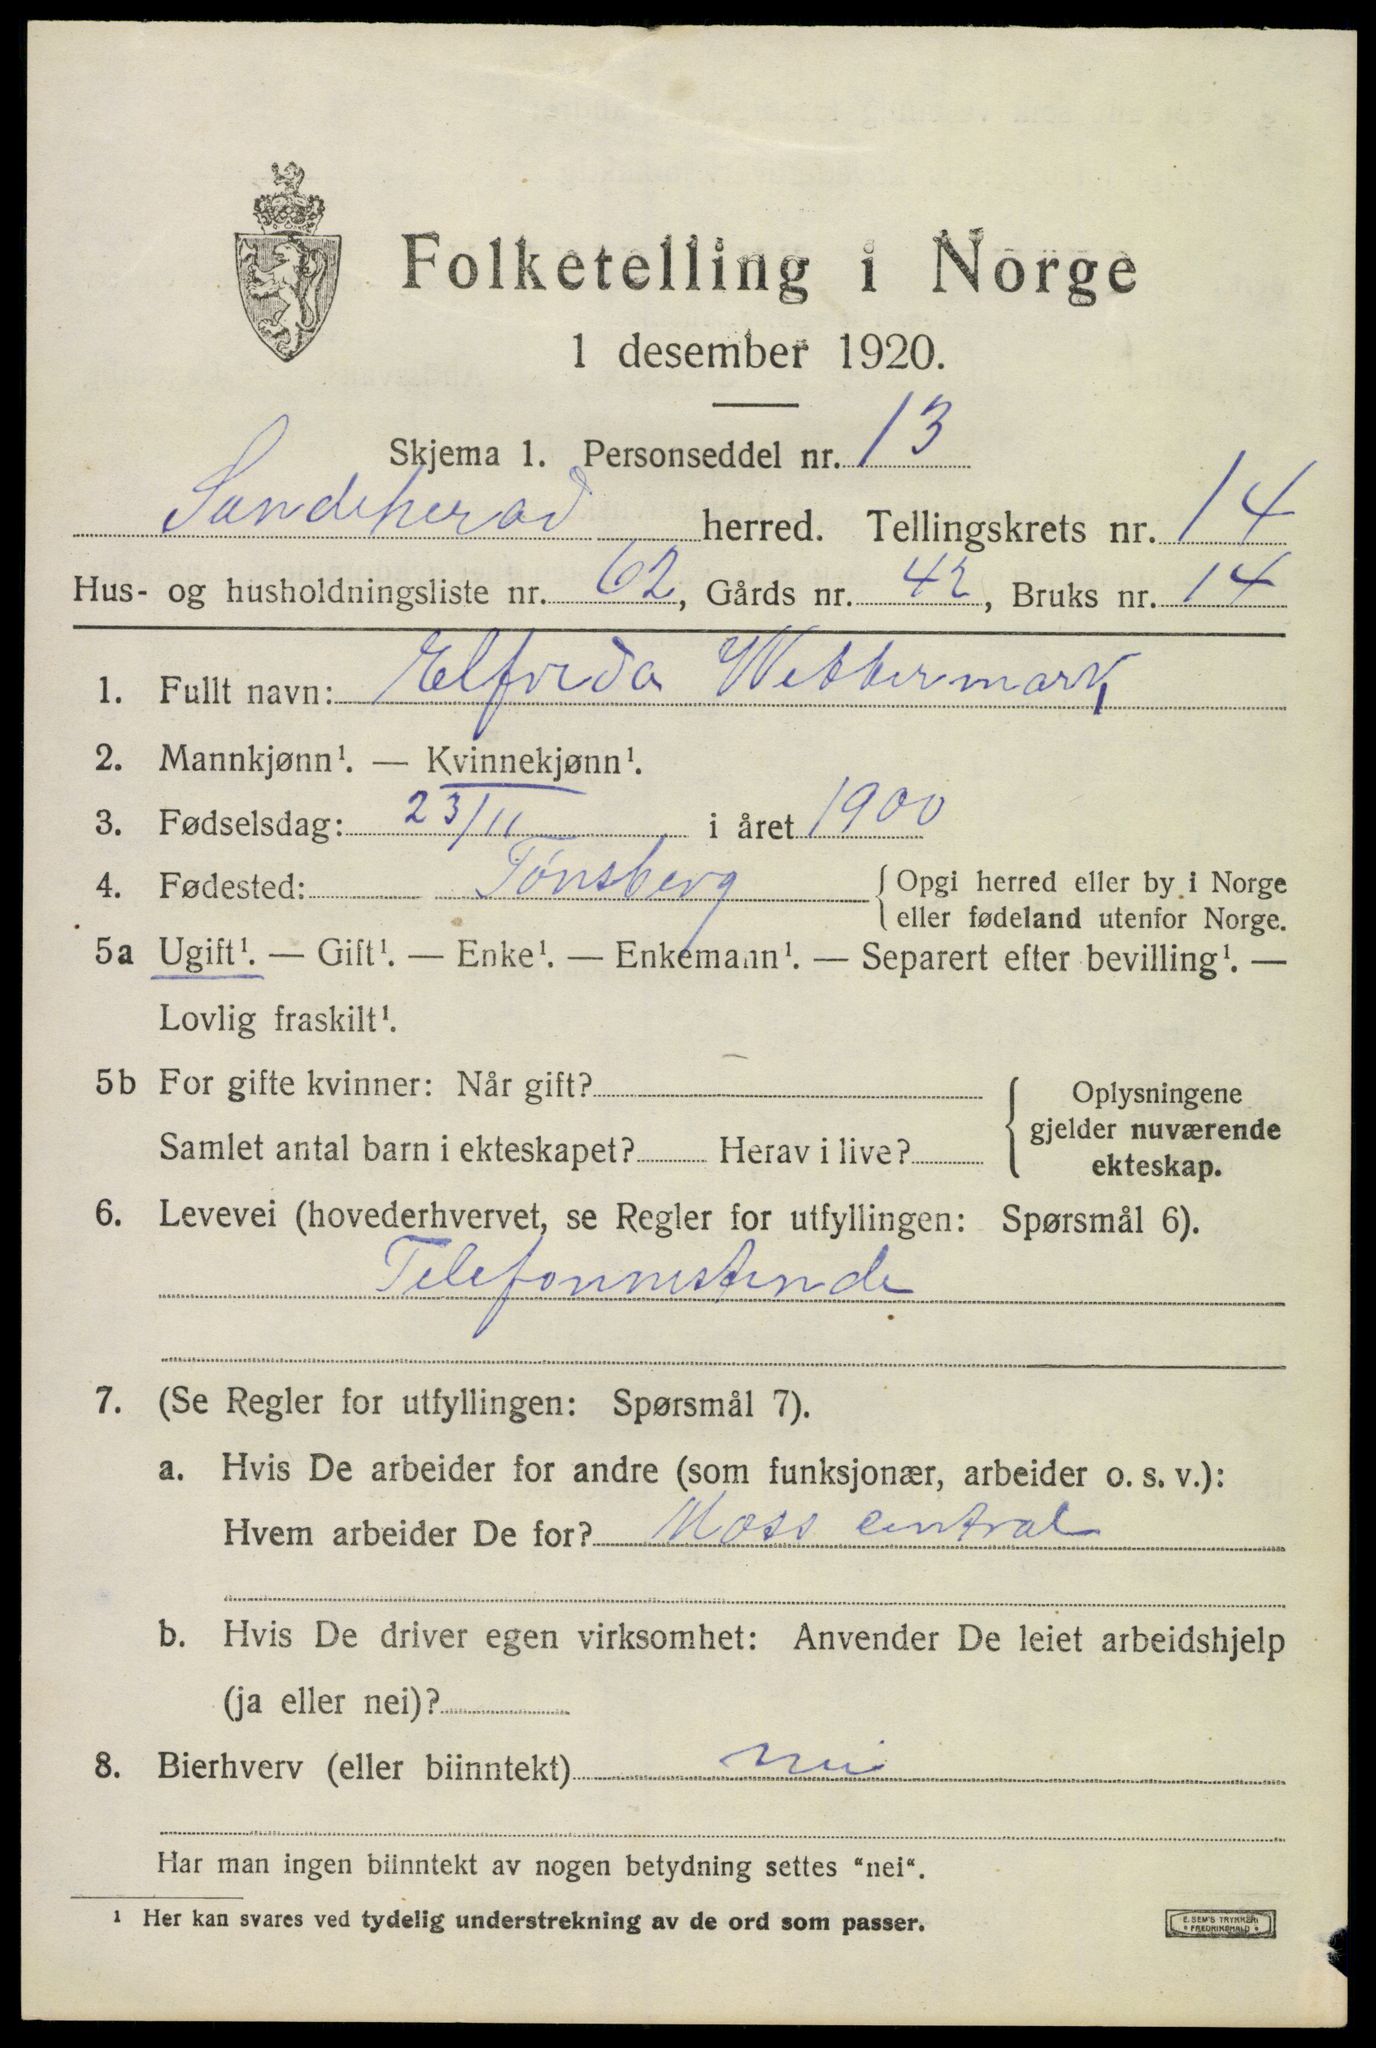 Folketelling i Norge
1 desember 1920.
Skjema 1. Personseddel nr. 13
Sandeherad herred. Tellingskrets nr. 14
Hus- og husholdningsliste nr. 62, Gårds nr. 42, Bruks nr. 14
1. Fullt navn: Elfrida Wettermark
2. Mannkjønn¹. — Kvinnekjønn¹.
3. Fødselsdag: 23/11 i året 1900
4. Fødested: Tønsberg { Opgi herred eller by i Norge
eller fødeland utenfor Norge.
5a Ugift¹. — Gift¹. — Enke¹. — Enkemann¹. — Separert efter bevilling¹. —
Lovlig fraskilt¹.
5b For gifte kvinner: Når gift? —
Samlet antal barn i ekteskapet? Herav i live?
{ Oplysningene
gjelder nuværende
ekteskap.
6. Levevei (hovederhvervet, se Regler for utfyllingen: Spørsmål 6).
Telefonnistinde
7. (Se Regler for utfyllingen: Spørsmål 7).
a. Hvis De arbeider for andre (som funksjonær, arbeider o. s. v.):
Hvem arbeider De for? Moss central
b. Hvis De driver egen virksomhet: Anvender De leiet arbeidshjelp
(ja eller nei)?
8. Bierhverv (eller biinntekt) nei
Har man ingen biinntekt av nogen betydning settes "nei".
¹ Her kan svares ved tydelig understrekning av de ord som passer.
E. SEM'S TRYKKERI
FREDRIKSHALD